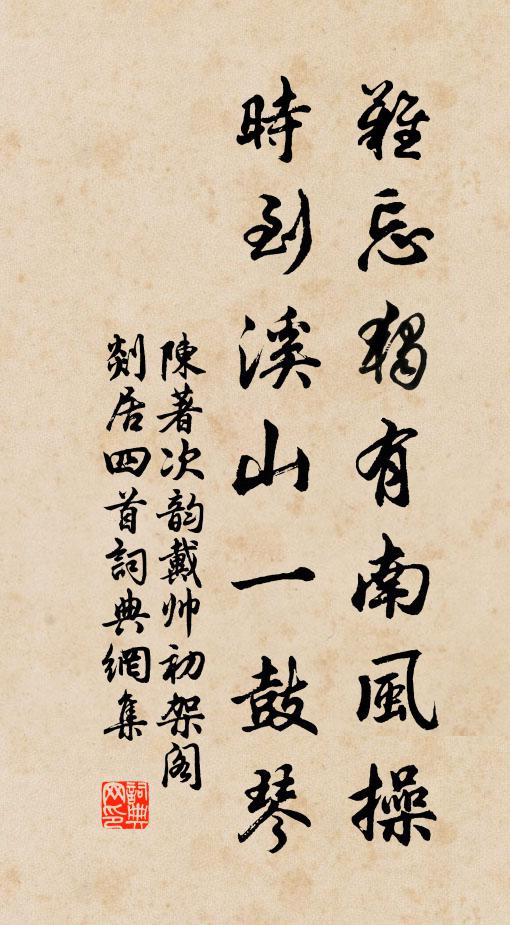 難忘獨有南風操
時到溪山一鼓琴
陳著次韵戴帅初架阁
剡居四首詞典網集
詞典网印